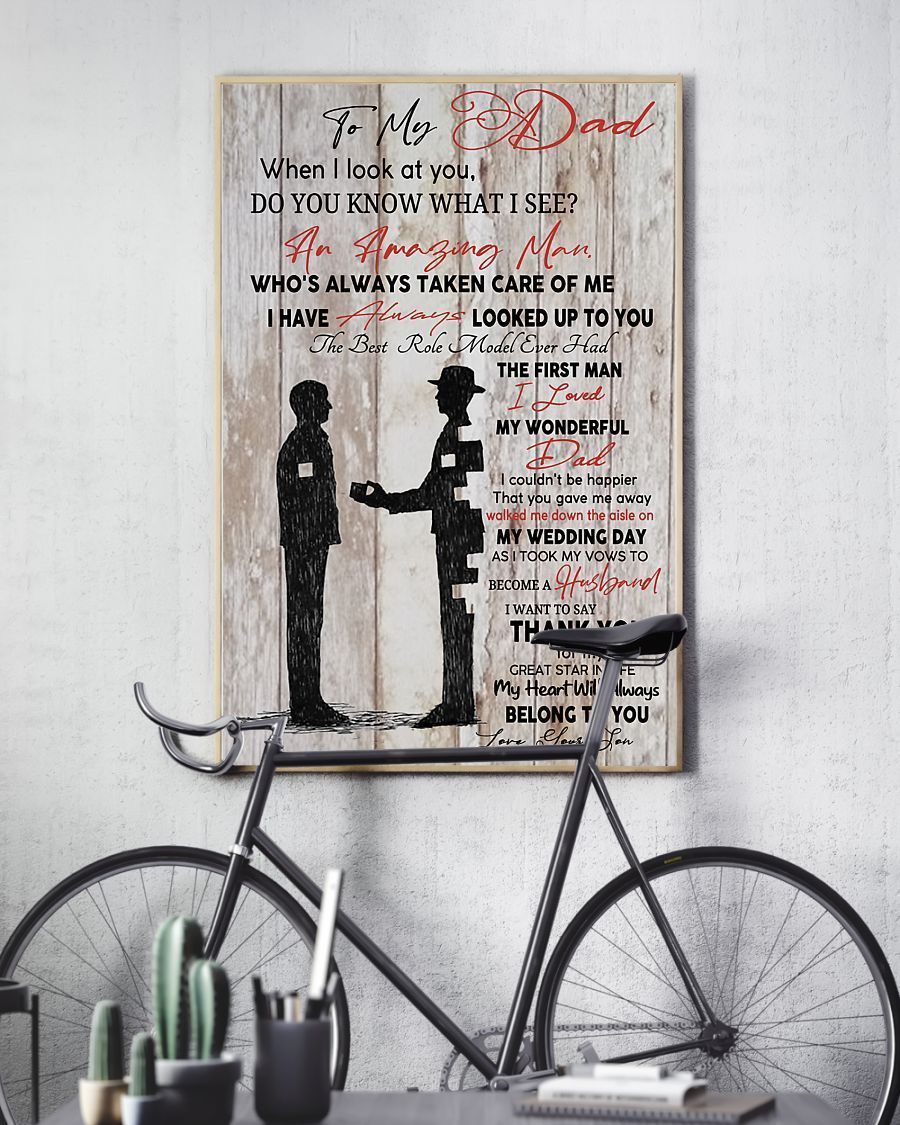 To My Dad
When I look at you,
DO YOU KNOW WHAT I SEE?
An Amazing Man,
WHO'S ALWAYS TAKEN CARE OF ME
I HAVE Always LOOKED UP TO YOU
The Best Role Model Ever Had
THE FIRST MAN
I Loved
MY WONDERFUL
Dad
I couldn't be happier
That you gave me away
walked me down the aisle on
MY WEDDING DAY
AS I TOOK MY VOWS TO
BECOME A Husband
I WANT TO SAY
THANK YOU
for my
GREAT STAR IN LIFE
My Heart Will Always
BELONG TO YOU
Love Your Son